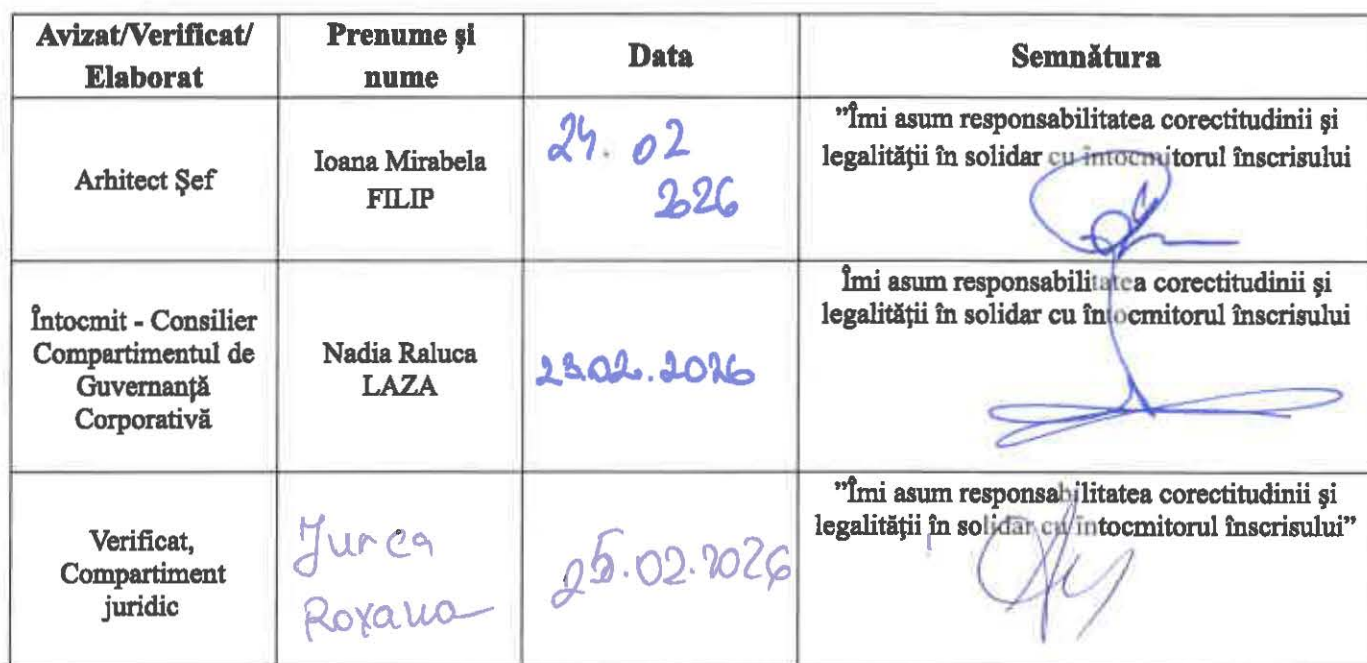 Avizat/Verificat/
Elaborat
Prenume și
nume
Data
Semnătura
Arhitect Șef
Ioana Mirabela
FILIP
24. 02
2026
"Îmi asum responsabilitatea corectitudinii și
legalității în solidar cu întocmitorul înscrisului
Întocmit - Consilier
Compartimentul de
Guvernanță
Corporativă
Nadia Raluca
LAZA
23.02.2026
Îmi asum responsabilitatea corectitudinii și
legalității în solidar cu întocmitorul înscrisului
Verificat,
Compartiment
juridic
Jurca
Roxana
25.02.2026
"Îmi asum responsabilitatea corectitudinii și
legalității în solidar cu întocmitorul înscrisului"